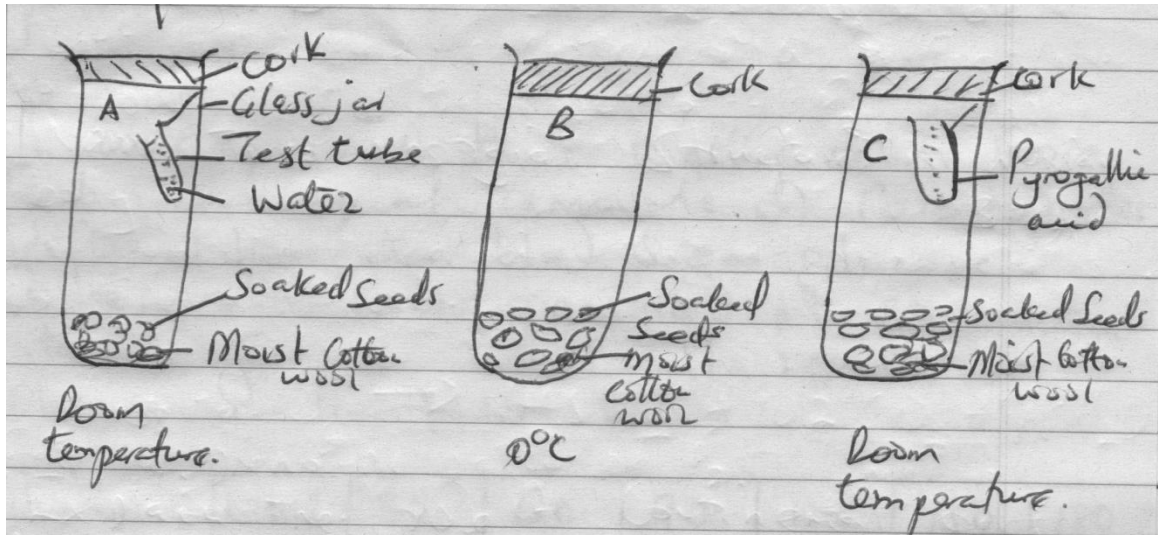 Cork
A
Glass jar
Test tube
Water
Soaked Seeds
Moist Cotton
wool
Room
temperature.
Cork
B
Soaked
Seeds
Moist
Cotton
wool
0°C
Cork
C
Pyrogallic
acid
Soaked Seeds
Moist Cotton
wool
Room
temperature.